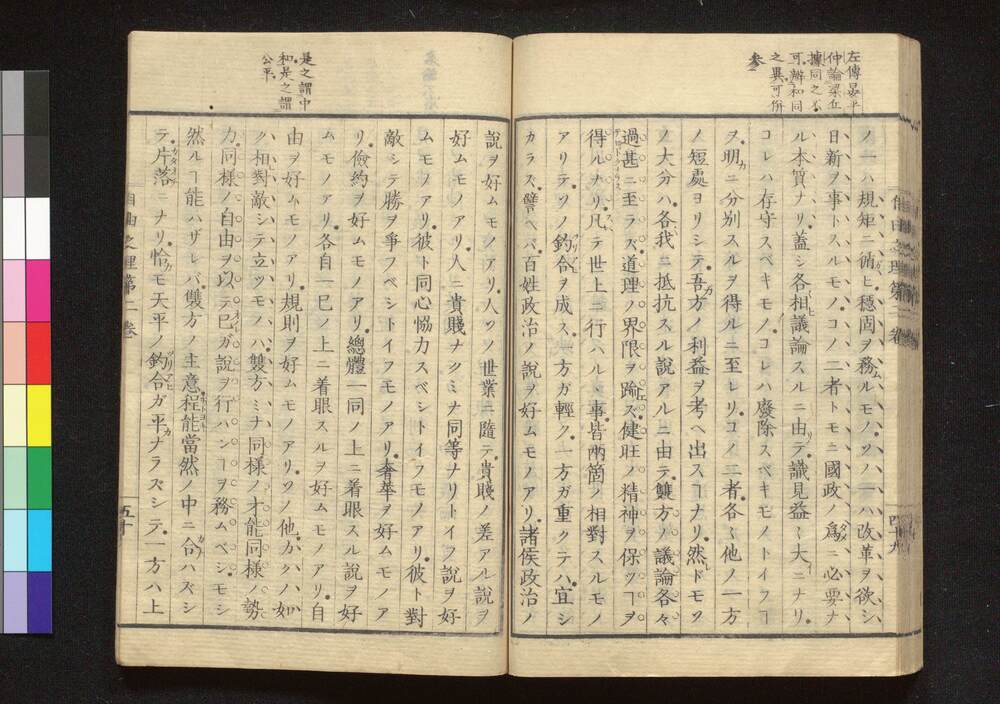 左傳昭公
仲論梁丘
據同之不
可辨和同
之異可併
参
ノ一ハ規矩ニ循ヒ穩固ヲ務ルモノ。ソノ一ハ改革ヲ欲シ
日新ヲ事トスルモノ。コノ二者トモニ國政ノ爲ニ必要ナ
ル本質ナリ。蓋シ各相議論スルニ由テ識見益〻大ニナリ。
コレハ存守スベキモノ。コレハ廢除スベキモノトイフヿ
ヲ。明ニ分別スルヲ得ルニ至レリ。コノ二者。各〻他ノ一方
ノ短處ヨリシテ。吾方ノ利益ヲ考ヘ出スヿナリ。然ドモソ
ノ大分ハ。各我ニ抵抗スル說アルニ由テ。雙方ノ議論各々
過甚ニ至ラズ。道理ノ界限ヲ踰ズ。健旺ノ精神ヲ保ツヿヲ
得ルナリ。凡テ世上ニ行ハルヽ事。皆兩箇ノ相對スルモノ
アリテ。ソノ釣合ヲ成ス。一方ガ輕ク。一方ガ重クテハ。宜シ
カラズ。譬ヘバ。百姓政治ノ說ヲ好ムモノアリ。諸侯政治ノ
是之謂中
和是之謂
公平
說ヲ好ムモノアリ。人ソノ世業ニ隨テ。貴賤ノ差アル說ヲ
好ムモノアリ。人ニ貴賤ナクミナ同等ナリトイフ說ヲ好
ムモノアリ。彼ト同心恊力スベシトイフモノアリ。彼ト對
敵シテ勝ヲ爭フベシトイフモノアリ。奢華ヲ好ムモノア
リ。儉約ヲ好ムモノアリ。總體一同ノ上ニ着眼スル說ヲ好
ムモノアリ。各自一己ノ上ニ着眼スルヲ好ムモノアリ。自
由ヲ好ムモノアリ。規則ヲ好ムモノアリ。ソノ他。カクノ如
ク。相對敵シテ立ツモノハ。雙方ミナ同様ノ才能。同様ノ勢
力。同様ノ自由ヲ以テ。己ガ說ヲ行ハンヿヲ務ムベシ。モシ
然ルヿ能ハザレバ。雙方ノ主意程能當然ノ中ニ合ハズシ
テ。片落ニナリ。恰モ天平ノ釣合ガ平ナラズシテ。一方ハ上
自由之理第二卷
五十